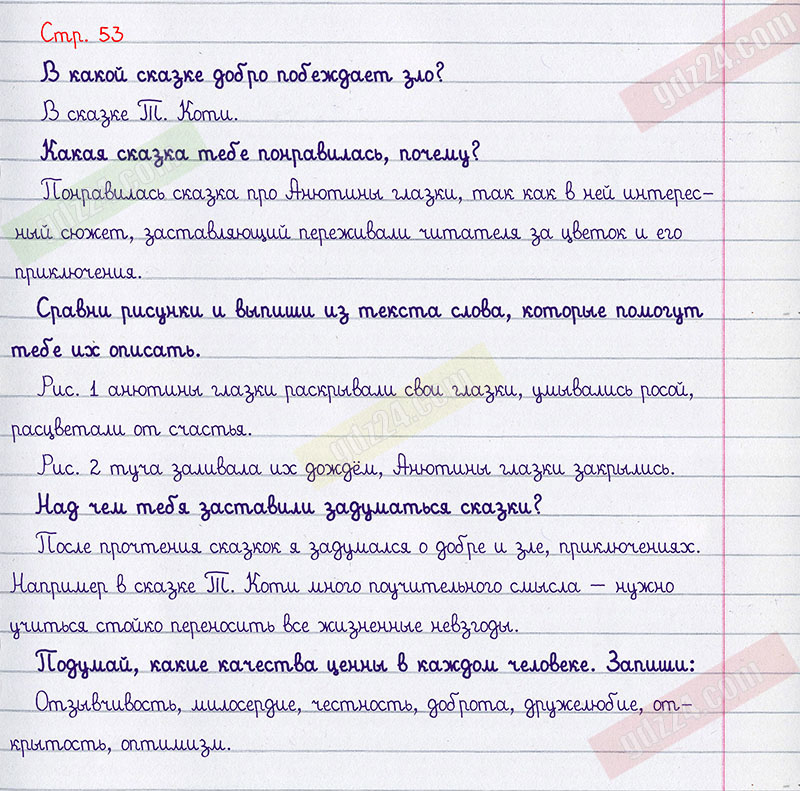 Стр. 53
В какой сказке добро побеждает зло?
В сказке Т. Коти.
Какая сказка тебе понравилась, почему?
Понравилась сказка про Анютины глазки, так как в ней интерес-
ный сюжет, заставляющий переживали читателя за цветок и его
приключения.
Сравни рисунки и выпиши из текста слова, которые помогут
тебе их описать.
Рис. 1 анютины глазки раскрывали свои глазки, умывались росой,
расцветали от счастья.
Рис. 2 туча заливала их дождём, Анютины глазки закрылись.
Над чем тебя заставили задуматься сказки?
После прочтения сказкок я задумался о добре и зле, приключениях.
Например в сказке Т. Коти много поучительного смысла – нужно
учиться стойко переносить все жизненные невзгоды.
Подумай, какие качества ценны в каждом человеке. Запиши:
Отзывчивость, милосердие, честность, доброта, дружелюбие, от-
крытость, оптимизм.
gdz24.com
gdz24.com
gdz24.com
gdz24.com